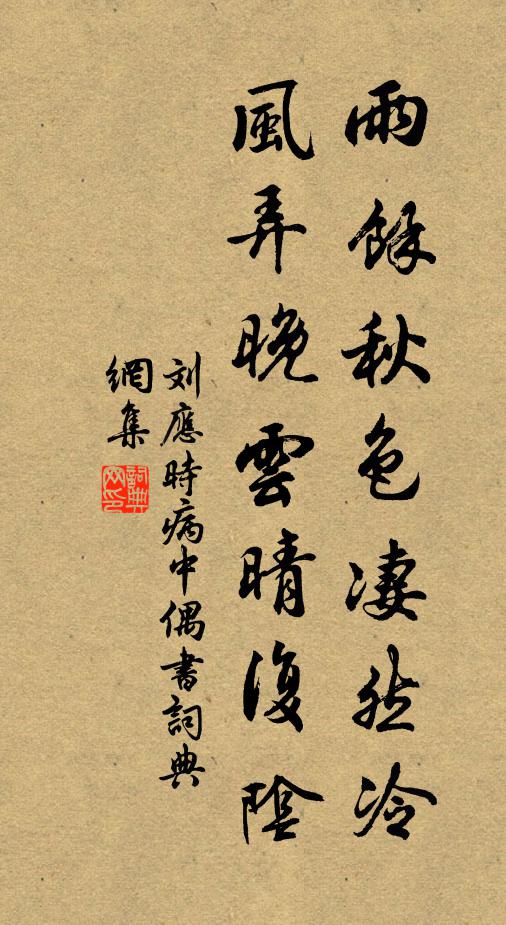 雨餘秋色凄然冷
風弄晚雲晴復陰
刘應時病中偶書詞典
網集
詞典
網印